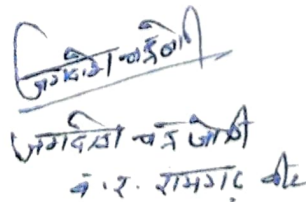 जगदिश चंद्र जोशी
जगदिश चन्द्र जोशी
व. र. रामगढ़